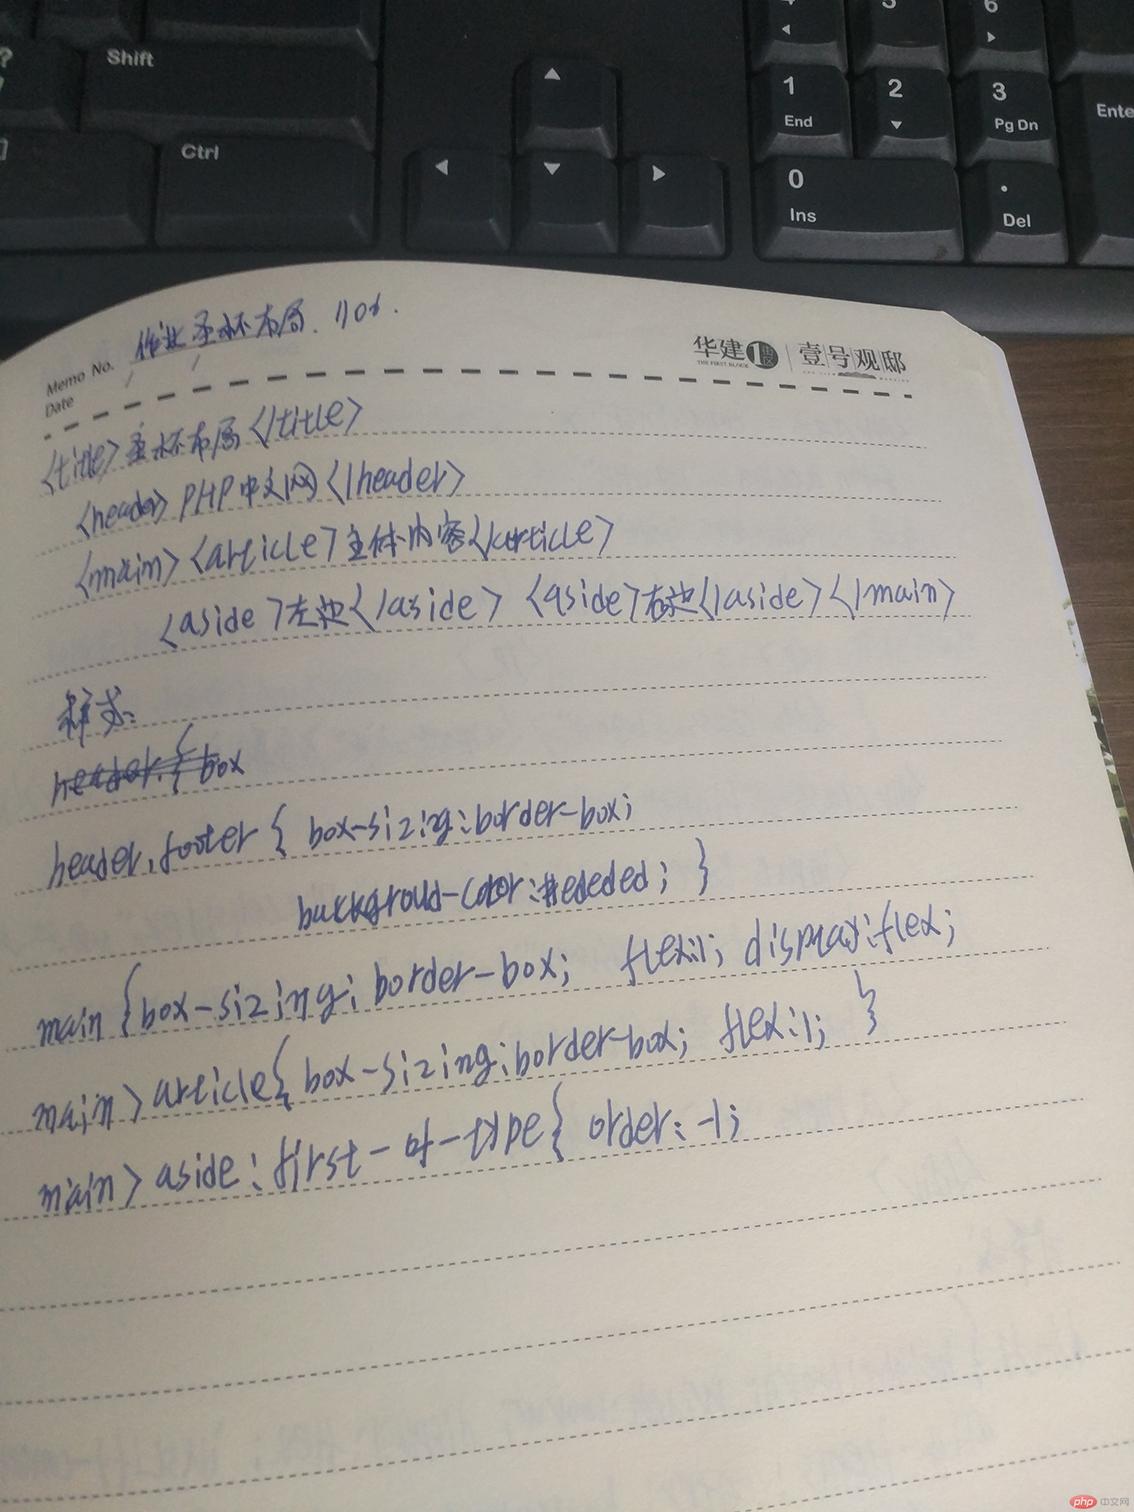 ?
Shift
Ctrl
4
5
6
1
End
2
3
Pg Dn
Enter
0
Ins
.
Del
作业圣杯布局. 1101.
Memo No.
Date
华建1街区 壹号观邸
THE FIRST BLOCK
<title>圣杯布局</title>
<header>PHP中文网</header>
<main><article>主体内容</article>
<aside>左边</aside> <aside>右边</aside></main>
样式:
header.{ box
header,footer { box-sizing:border-box;
backgroud-color:#ededed; }
main {box-sizing: border-box; flex:1; display:flex;
main>article{ box-sizing:border-box; flex:1; }
main>aside:first-of-type{ order:-1;
php 中文网